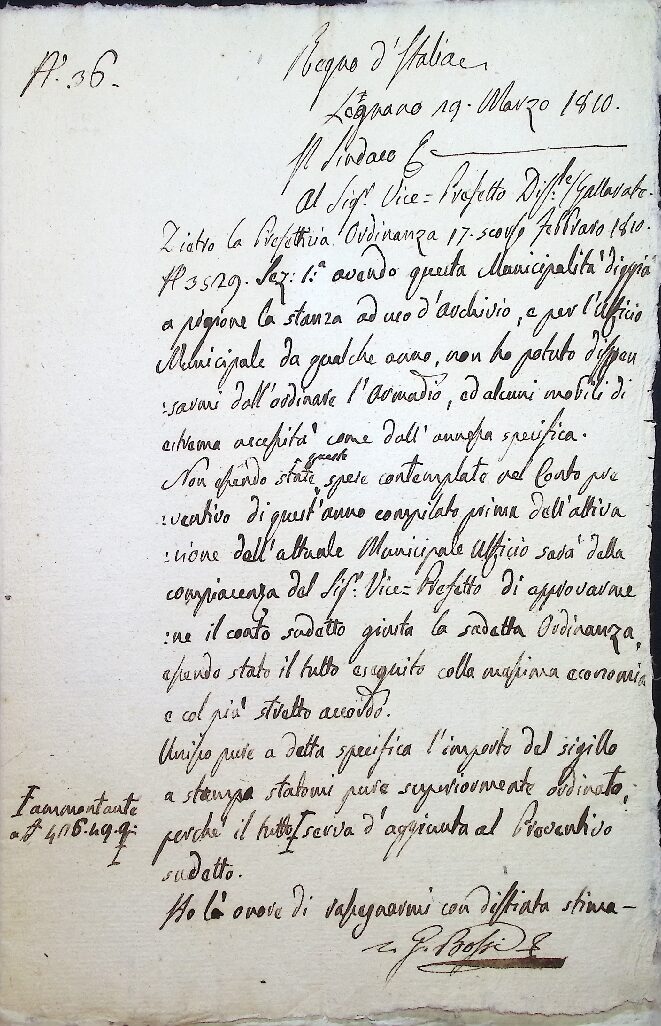 N.° 36.
Regno d'Italia
Legnano 19. Marzo 1810.
Il Sindaco
Al Sig.r Vice=Prefetto Diss.le Gallarate.
Dietro la Prefettizia Ordinanza 17. scorso Febbraro 1810.
N.° 3529. Sez: 1.a avendo questa Municipalità diggià
a pigione la stanza ad uso d'Archivio, e per l'Ufficio
Municipale da qualche anno, non ho potuto dispen
:sarmi dall'ordinare l'Armadio, ed alcuni mobili di
estrema necessità come dall'annessa specifica.
Non essendo state queste spese contemplate nel Conto pre
:ventivo di quest'anno compilato prima dell'attiva
:zione dell'attuale Municipale Ufficio sarà della
compiacenza del Sig.r Vice=Prefetto di approvarme
:ne il conto sudetto giusta la sudetta Ordinanza,
essendo stato il tutto eseguito colla massima economia
e col più stretto accordo.
Unisco pure a detta specifica l'importo del sigillo
a stampa statomi pure superiormente ordinato,
perchè il tutto serva d'aggiunta al Preventivo
sudetto.
ammontante
a
Ho là onore di rassegnarmi con distinta stima
G. Bossi